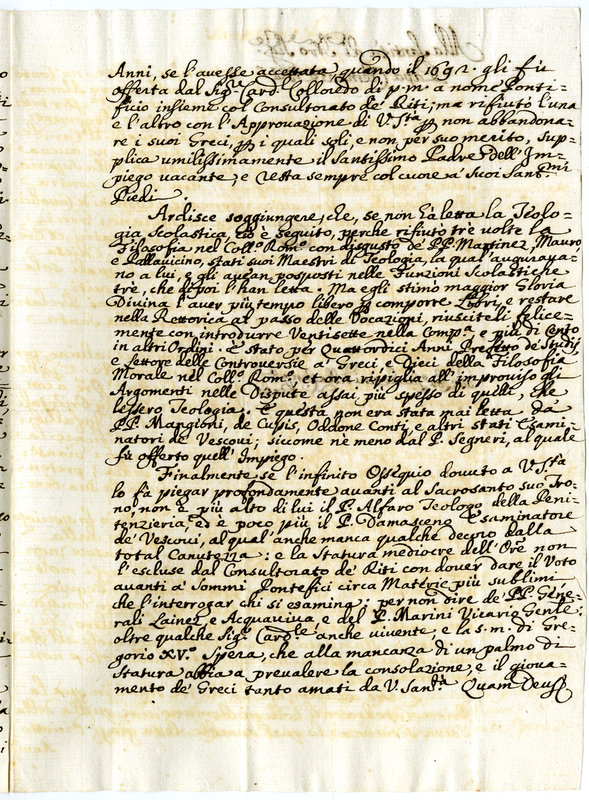 Anni, se l'avesse accettata, quando il 1692. gli fù
offerta dal Sig.r Card. Colloredo di p. m. a nome Ponti=
ficio insieme col Consultorato de' Riti; ma rifiutò l'una
e l'altro con l'Approvazione di V. S.tà non abbandona=
re i suoi Greci, i quali soli, e non per suo merito, sup=
plica umilissimamente il Santissimo Padre dell'Im=
piego vacante; e resta sempre col cuore a' suoi Sant.mi
Piedi.
Ardisce soggiungere, che, se non hà letta la Teolo=
gia Scolastica, ciò è seguito, perche rifiutò tre volte la
Filosofia nel Coll.o Rom.o con disgusto de' PP. Martinez, Mauro,
e Pallavicino, stati suoi Maestri di Teologia, la qual'augurava=
no a lui, e gli avean posposti nelle Funzioni Scolastiche
tre, che dipoi l'han letta. Ma egli stimò maggior Gloria
Divina l'aver più tempo libero comporre Libri, e restare
nella Rettorica al passo delle Vocazioni, riusciteli felice=
mente con introdurre Ventisette nella Comp.a e più di Cento
in altri Ordini. È stato per Quattordici Anni Prefetto de' Studij,
e Lettore delle Controversie a' Greci, e Dieci della Filosofia
Morale nel Coll.o Rom.o, et ora ripiglia all'improviso di
Argomenti nelle Dispute assai più spesso di quelli, che
lessero Teologia. E questa non era stata mai letta da
PP. Mangioni, de Cupis, Oddone Conti, e altri stati Esami=
natori de' Vescovi; siccome ne meno dal P. Segneri, al quale
fù offerto quell'Impiego.
Finalmente, se l'infinito Ossequio dovuto a V. S.tà
lo fà piegar profondamente avanti al Sacrosanto suo Tro=
no, non è più alto di lui il P. Alfaro Teologo della Peni=
tenzieria, ed è poco più il P. Damasceno Esaminatore
de' Vescovi, al qual'anche manca qualche decoro dalla
total Canutezza: e la Statura mediocre dell' non
l'escluse dal Consultorato de' Riti con dover dare il Voto
avanti a' Sommi Pontefici circa Materie più sublimi,
che l'interrogar chi si esamina; per non dire de' PP. Gene=
rali Lainez e Acquaviva, e del P. Marini Vicario Gen.le;
oltre qualche Sig.r Card.le anche vivente, e la s. m. di Gre=
gorio XV.o Spera, che alla mancanza di un palmo di
Statura abbia a prevalere la consolazione, e il giova=
mento de' Greci tanto amati da V. San.tà Quam Deus